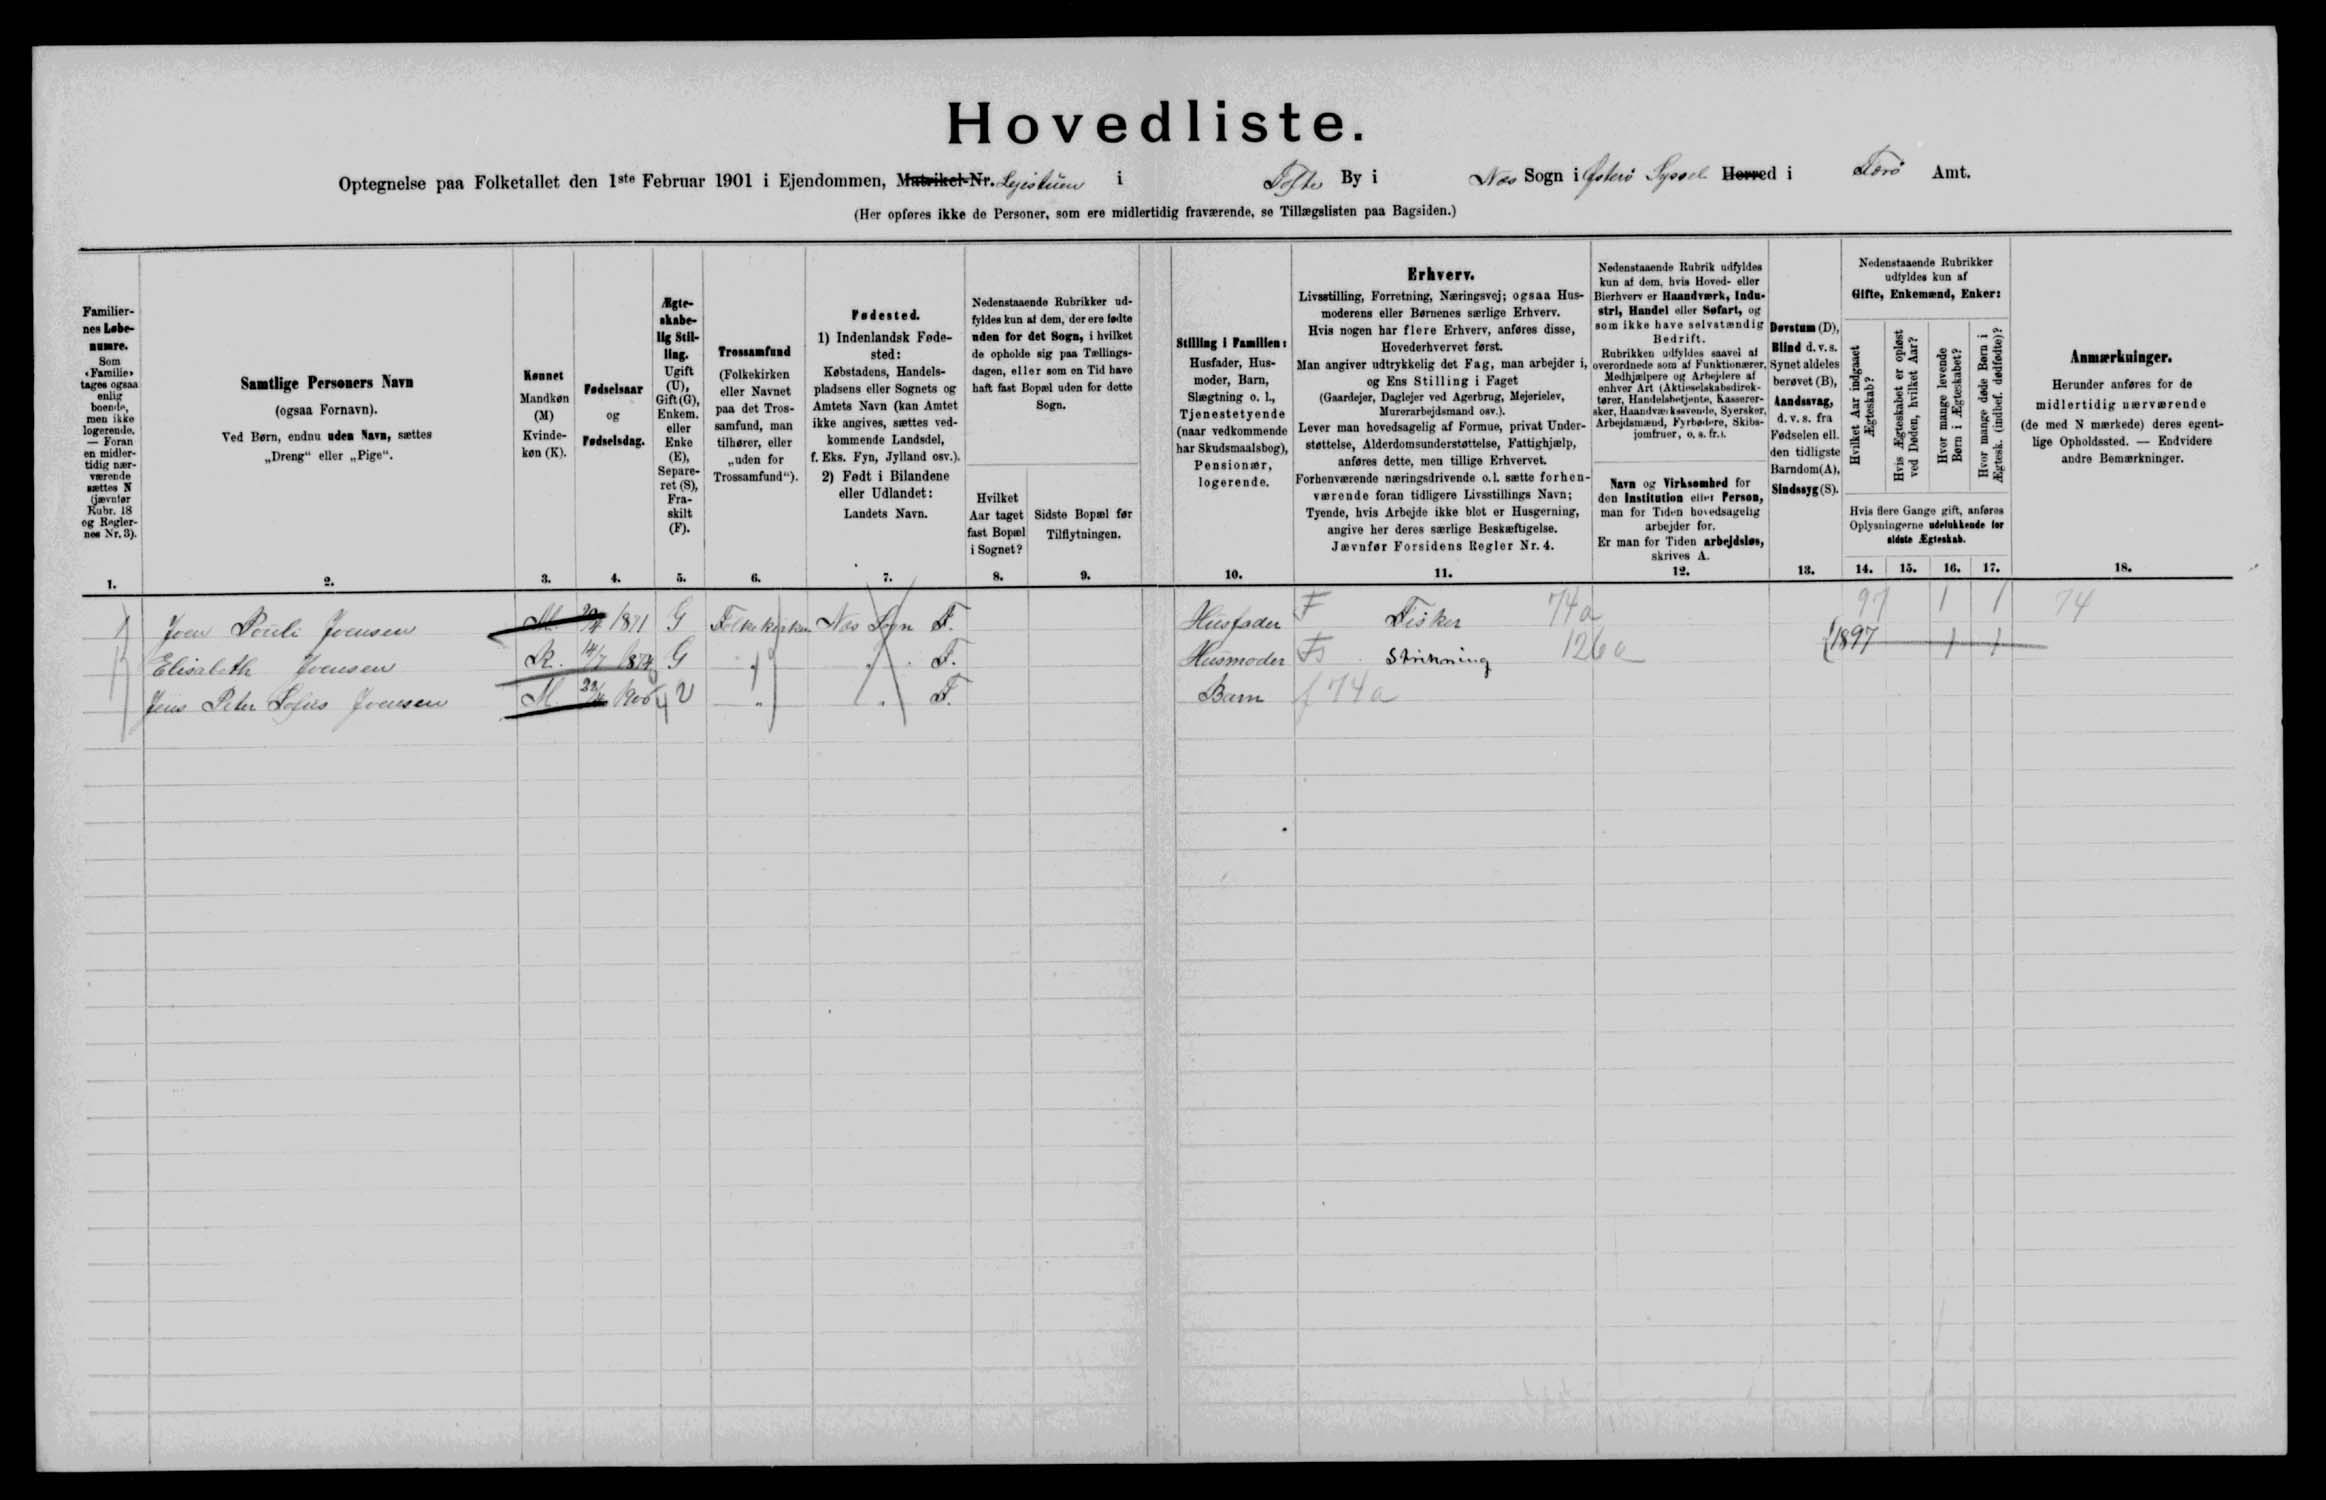 Hovedliste.
Optegnelse paa Folketallet den 1ste Februar 1901 i Ejendommen, Matrikel-Nr. Lejestuen i Tofte By i Næs Sogn i Østerø Syssel Herred i Færø Amt.
(Her opføres ikke de Personer, som ere midlertidig fraværende, se Tillægslisten paa Bagsiden.)
Familier-
nes Løbe-
numre.
Som
«Familie»
tages ogsaa
enlig
boende,
men ikke
logerende.
— Foran
en midler-
tidig nær-
værende
sættes N
(jævnfør
Rubr. 18
og Regler-
nes Nr. 3).
1.
Samtlige Personers Navn
(ogsaa Fornavn).
Ved Børn, endnu uden Navn, sættes
„Dreng“ eller „Pige“.
2.
Kønnet
Mandkøn
(M)
Kvinde-
køn (K).
3.
Fødselsaar
og
Fødselsdag.
4.
Ægte-
skabe-
lig Stil-
ling.
Ugift
(U),
Gift (G),
Enkem.
eller
Enke
(E),
Separe-
ret (S),
Fra-
skilt
(F).
5.
Trossamfund
(Folkekirken
eller Navnet
paa det Tros-
samfund, man
tilhører, eller
„uden for
Trossamfund“).
6.
Fødested.
1) Indenlandsk Føde-
sted:
Købstadens, Handels-
pladsens eller Sognets og
Amtets Navn (kan Amtet
ikke angives, sættes ved-
kommende Landsdel,
f. Eks. Fyn, Jylland osv.).
2) Født i Bilandene
eller Udlandet:
Landets Navn.
7.
Nedenstaaende Rubrikker ud-
fyldes kun af dem, der ere fødte
uden for det Sogn, i hvilket
de opholde sig paa Tællings-
dagen, eller som en Tid have
haft fast Bopæl uden for dette
Sogn.
Hvilket
Aar taget
fast Bopæl
i Sognet?
8.
Sidste Bopæl før
Tilflytningen.
9.
Stilling i Familien:
Husfader, Hus-
moder, Barn,
Slægtning o. l.,
Tjenestetyende
(naar vedkommende
har Skudsmaalsbog),
Pensionær,
logerende.
10.
Erhverv.
Livsstilling, Forretning, Næringsvej; ogsaa Hus-
moderens eller Børnenes særlige Erhverv.
Hvis nogen har flere Erhverv, anføres disse,
Hovederhvervet først.
Man angiver udtrykkelig det Fag, man arbejder i,
og Ens Stilling i Faget
(Gaardejer, Daglejer ved Agerbrug, Mejerielev,
Murerarbejdsmand osv.).
Lever man hovedsagelig af Formue, privat Under-
støttelse, Alderdomsunderstøttelse, Fattighjælp,
anføres dette, men tillige Erhvervet.
Forhenværende næringsdrivende o.l. sætte forhen-
værende foran tidligere Livsstillings Navn;
Tyende, hvis Arbejde ikke blot er Husgerning,
angive her deres særlige Beskæftigelse.
Jævnfør Forsidens Regler Nr. 4.
11.
Nedenstaaende Rubrik udfyldes
kun af dem, hvis Hoved- eller
Bierhverv er Haandværk, Indu-
stri, Handel eller Søfart, og
som ikke have selvstændig
Bedrift.
Rubrikken udfyldes saavel af
overordnede som af Funktionærer,
Medhjælpere og Arbejdere af
enhver Art (Aktieselskabsdirek-
tører, Handelsbetjente, Kasserer-
sker, Haandværkssvende, Syersker,
Arbejdsmænd, Fyrbødere, Skibs-
jomfruer, o. s. fr.).
Navn og Virksomhed for
den Institution eller Person,
man for Tiden hovedsagelig
arbejder for.
Er man for Tiden arbejdsløs,
skrives A.
12.
Døvstum (D),
Blind d. v. s.
Synet aldeles
berøvet (B),
Aandssvag,
d. v. s. fra
Fødselen ell.
den tidligste
Barndom (A),
Sindssyg (S).
13.
Nedenstaaende Rubrikker
udfyldes kun af
Gifte, Enkemænd, Enker:
Hvilket Aar indgaaet
Ægteskab?
Hvis Ægteskabet er opløst
ved Døden, hvilket Aar?
Hvor mange levende
Børn i Ægteskabet?
Hvor mange døde Børn i
Ægtesk. (indbef. dødfødte)?
Hvis flere Gange gift, anføres
Oplysningerne udelukkende for
sidste Ægteskab.
14. 15. 16. 17.
Anmærkninger.
Herunder anføres for de
midlertidig nærværende
(de med N mærkede) deres egent-
lige Opholdssted. — Endvidere
andre Bemærkninger.
18.
Joen Pouli Joensen M. 1871 G Folkekirken Næs Sogn F. Husfader F Fisker 74a 97 1 1 74
Elisabeth Joensen K. 14/7 G " " F. Husmoder Strikning 126a 1897 1 1
Jens Peter Sofus Joensen M. 1900 U " " F. Barn f 74a